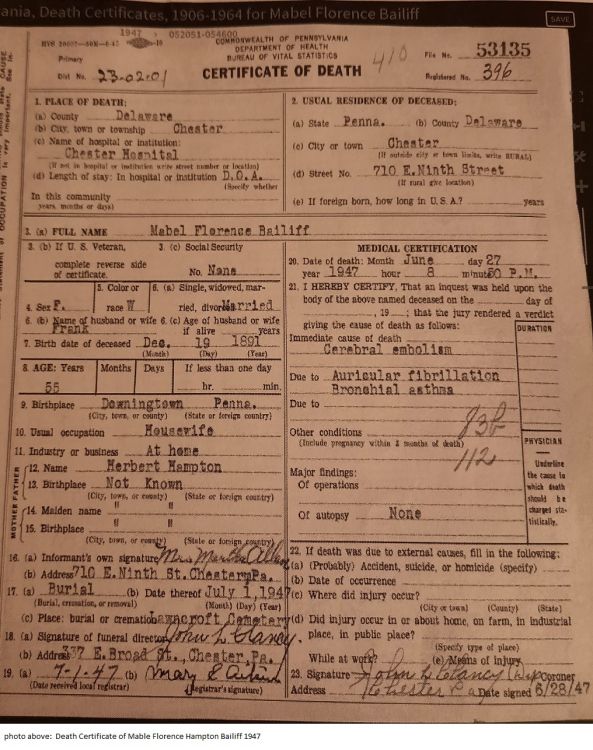 ania, Death Certificates, 1906-1964 for Mabel Florence Bailiff
SAVE
1947 052051-054600
COMMONWEALTH OF PENNSYLVANIA
DEPARTMENT OF HEALTH
BUREAU OF VITAL STATISTICS
410
File No. 53135
Primary
Dist No. 23-02-01
CERTIFICATE OF DEATH
Registered No. 396
1. PLACE OF DEATH:
(a) County Delaware
(b) City, town or township Chester
(c) Name of hospital or institution:
Chester Hospital
(If not in hospital or institution write street number or location)
(d) Length of stay: In hospital or institution D.O.A.
(Specify whether
In this community
years, months or days)
2. USUAL RESIDENCE OF DECEASED:
(a) State Penna. (b) County Delaware
(c) City or town Chester
(If outside city or town limits, write RURAL)
(d) Street No. 710 E.Ninth Street
(If rural give location)
(e) If foreign born, how long in U.S.A.? years
3. (a) FULL NAME Mabel Florence Bailiff
3. (b) If U. S. Veteran, 3. (c) Social Security
complete reverse side
of certificate. No. None
4. Sex F. 5. Color or race W 6. (a) Single, widowed, married, divorced Married
6. (b) Name of husband or wife 6. (c) Age of husband or wife
Frank if alive years
7. Birth date of deceased Dec. 19 1891
(Month) (Day) (Year)
8. AGE: Years Months Days If less than one day
55 hr. min.
9. Birthplace Downingtown Penna.
(City, town, or county) (State or foreign country)
10. Usual occupation Housewife
11. Industry or business At home
FATHER
12. Name Herbert Hampton
13. Birthplace Not Known
(City, town, or county) (State or foreign country)
MOTHER
14. Maiden name "    "
15. Birthplace "    "
(City, town, or county) (State or foreign country)
16. (a) Informant's own signature Mrs. Martha Allen
(b) Address 710 E.Ninth St.Chester,Pa.
17. (a) Burial (b) Date thereof July 1,1947
(Burial, cremation, or removal) (Month) (Day) (Year)
(c) Place: burial or cremation Lawncroft Cemetery
18. (a) Signature of funeral director John L Clancy.
(b) Address 337 E.Broad St., Chester,Pa.
19. (a) 7-1-47 (b) Mary E
(Date received local registrar) (Registrar's signature)
MEDICAL CERTIFICATION
20. Date of death: Month June day 27
year 1947 hour 8 minute 50 P.M.
21. I HEREBY CERTIFY, That an inquest was held upon
the body of the above named deceased on the day of
, 19 ; that the jury rendered a verdict
giving the cause of death as follows:
DURATION
Immediate cause of death
Cerebral embolism
Due to Auricular fibrillation
Bronchial asthma
Due to
83b
Other conditions
(Include pregnancy within 3 months of death)
112
PHYSICIAN
Underline
the cause to
which death
should be
charged sta-
tistically.
Major findings:
Of operations
Of autopsy None
22. If death was due to external causes, fill in the following:
(a) (Probably) Accident, suicide, or homicide (specify)
(b) Date of occurrence
(c) Where did injury occur?
(City or town) (County) (State)
(d) Did injury occur in or about home, on farm, in industrial
place, in public place?
(Specify type of place)
While at work? (e) Means of injury
23. Signature John L Clancy Dep Coroner
Address Chester Pa Date signed 6/28/47
photo above: Death Certificate of Mable Florence Hampton Bailiff 1947